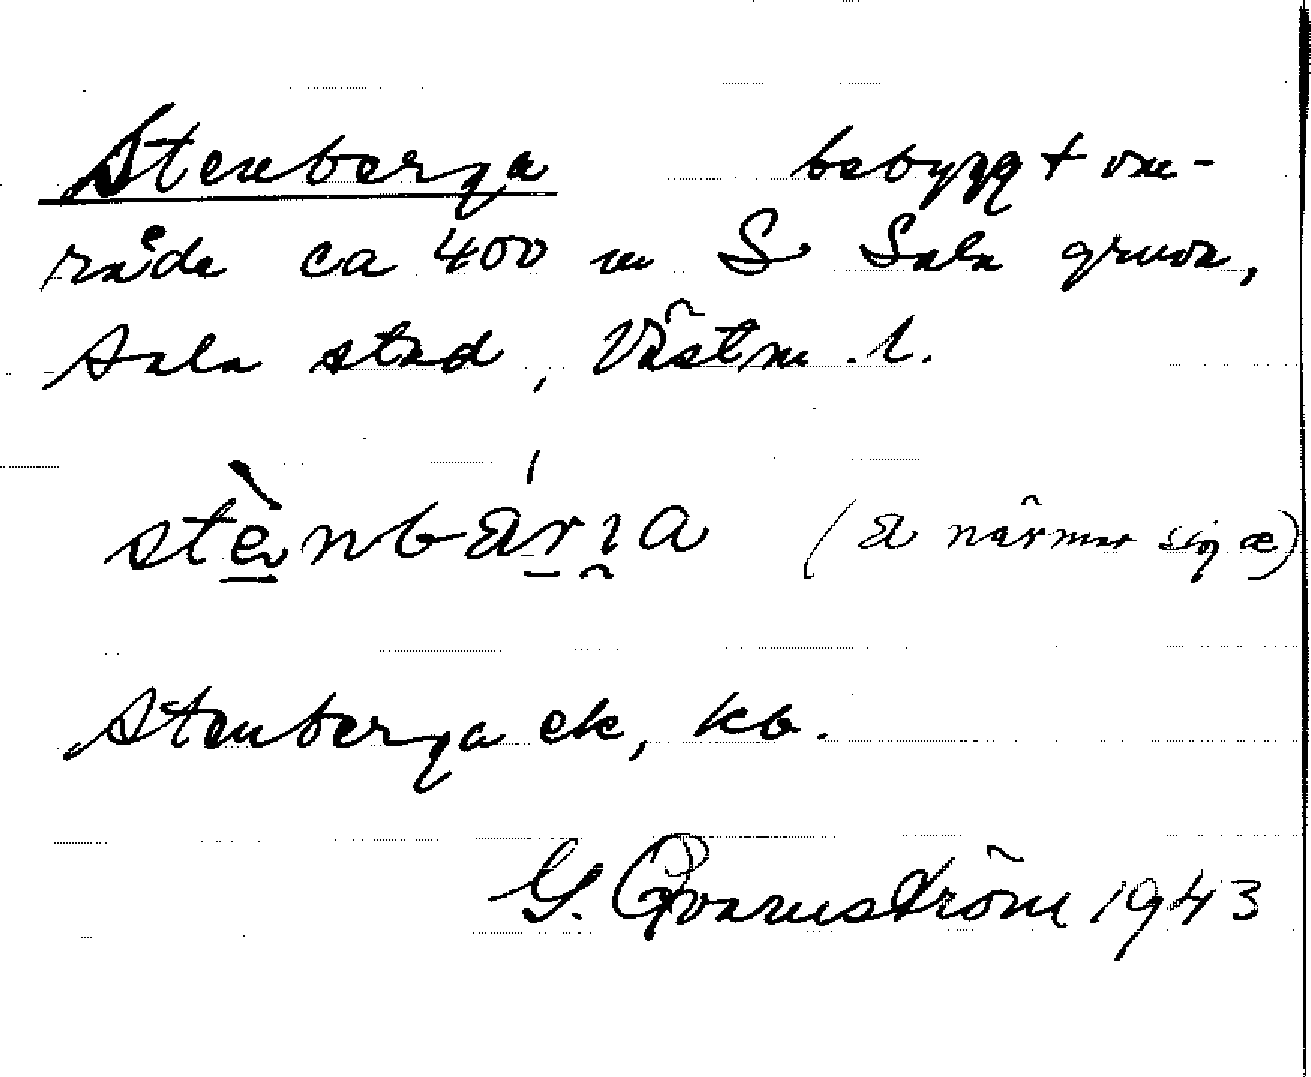 Stenberga bebyggt om-
råde ca 400 m S Sala gruva,
Sala stad, Västm. l.
stè̱nbáṟı̯a (a närmar sig æ)
Stenberga ek, kb.
G. Qvarnström 1943